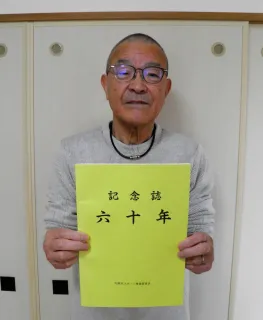 記念誌
六十年